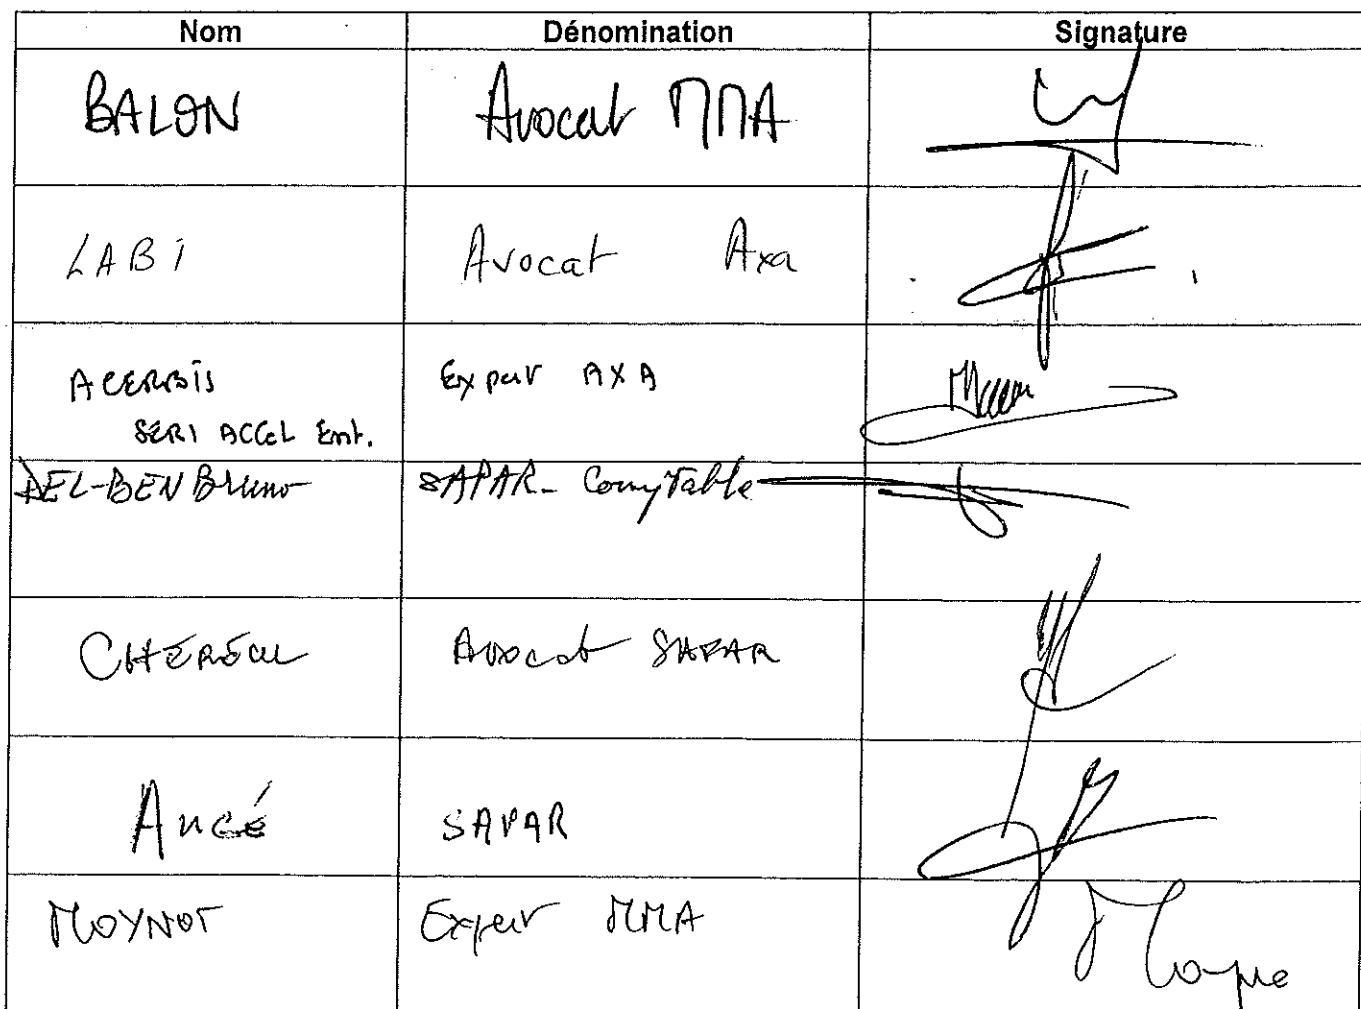 Nom Dénomination Signature
BALON Avocat MMA
LABI Avocat Axa
ACERBIS Expert AXA
SERI ACCEL Emt.
DEL-BEN Bruno SAPAR- Comptable
CHÉREAU Avocat SAPAR
Ancé SAPAR
MOYNOT Expert MMA